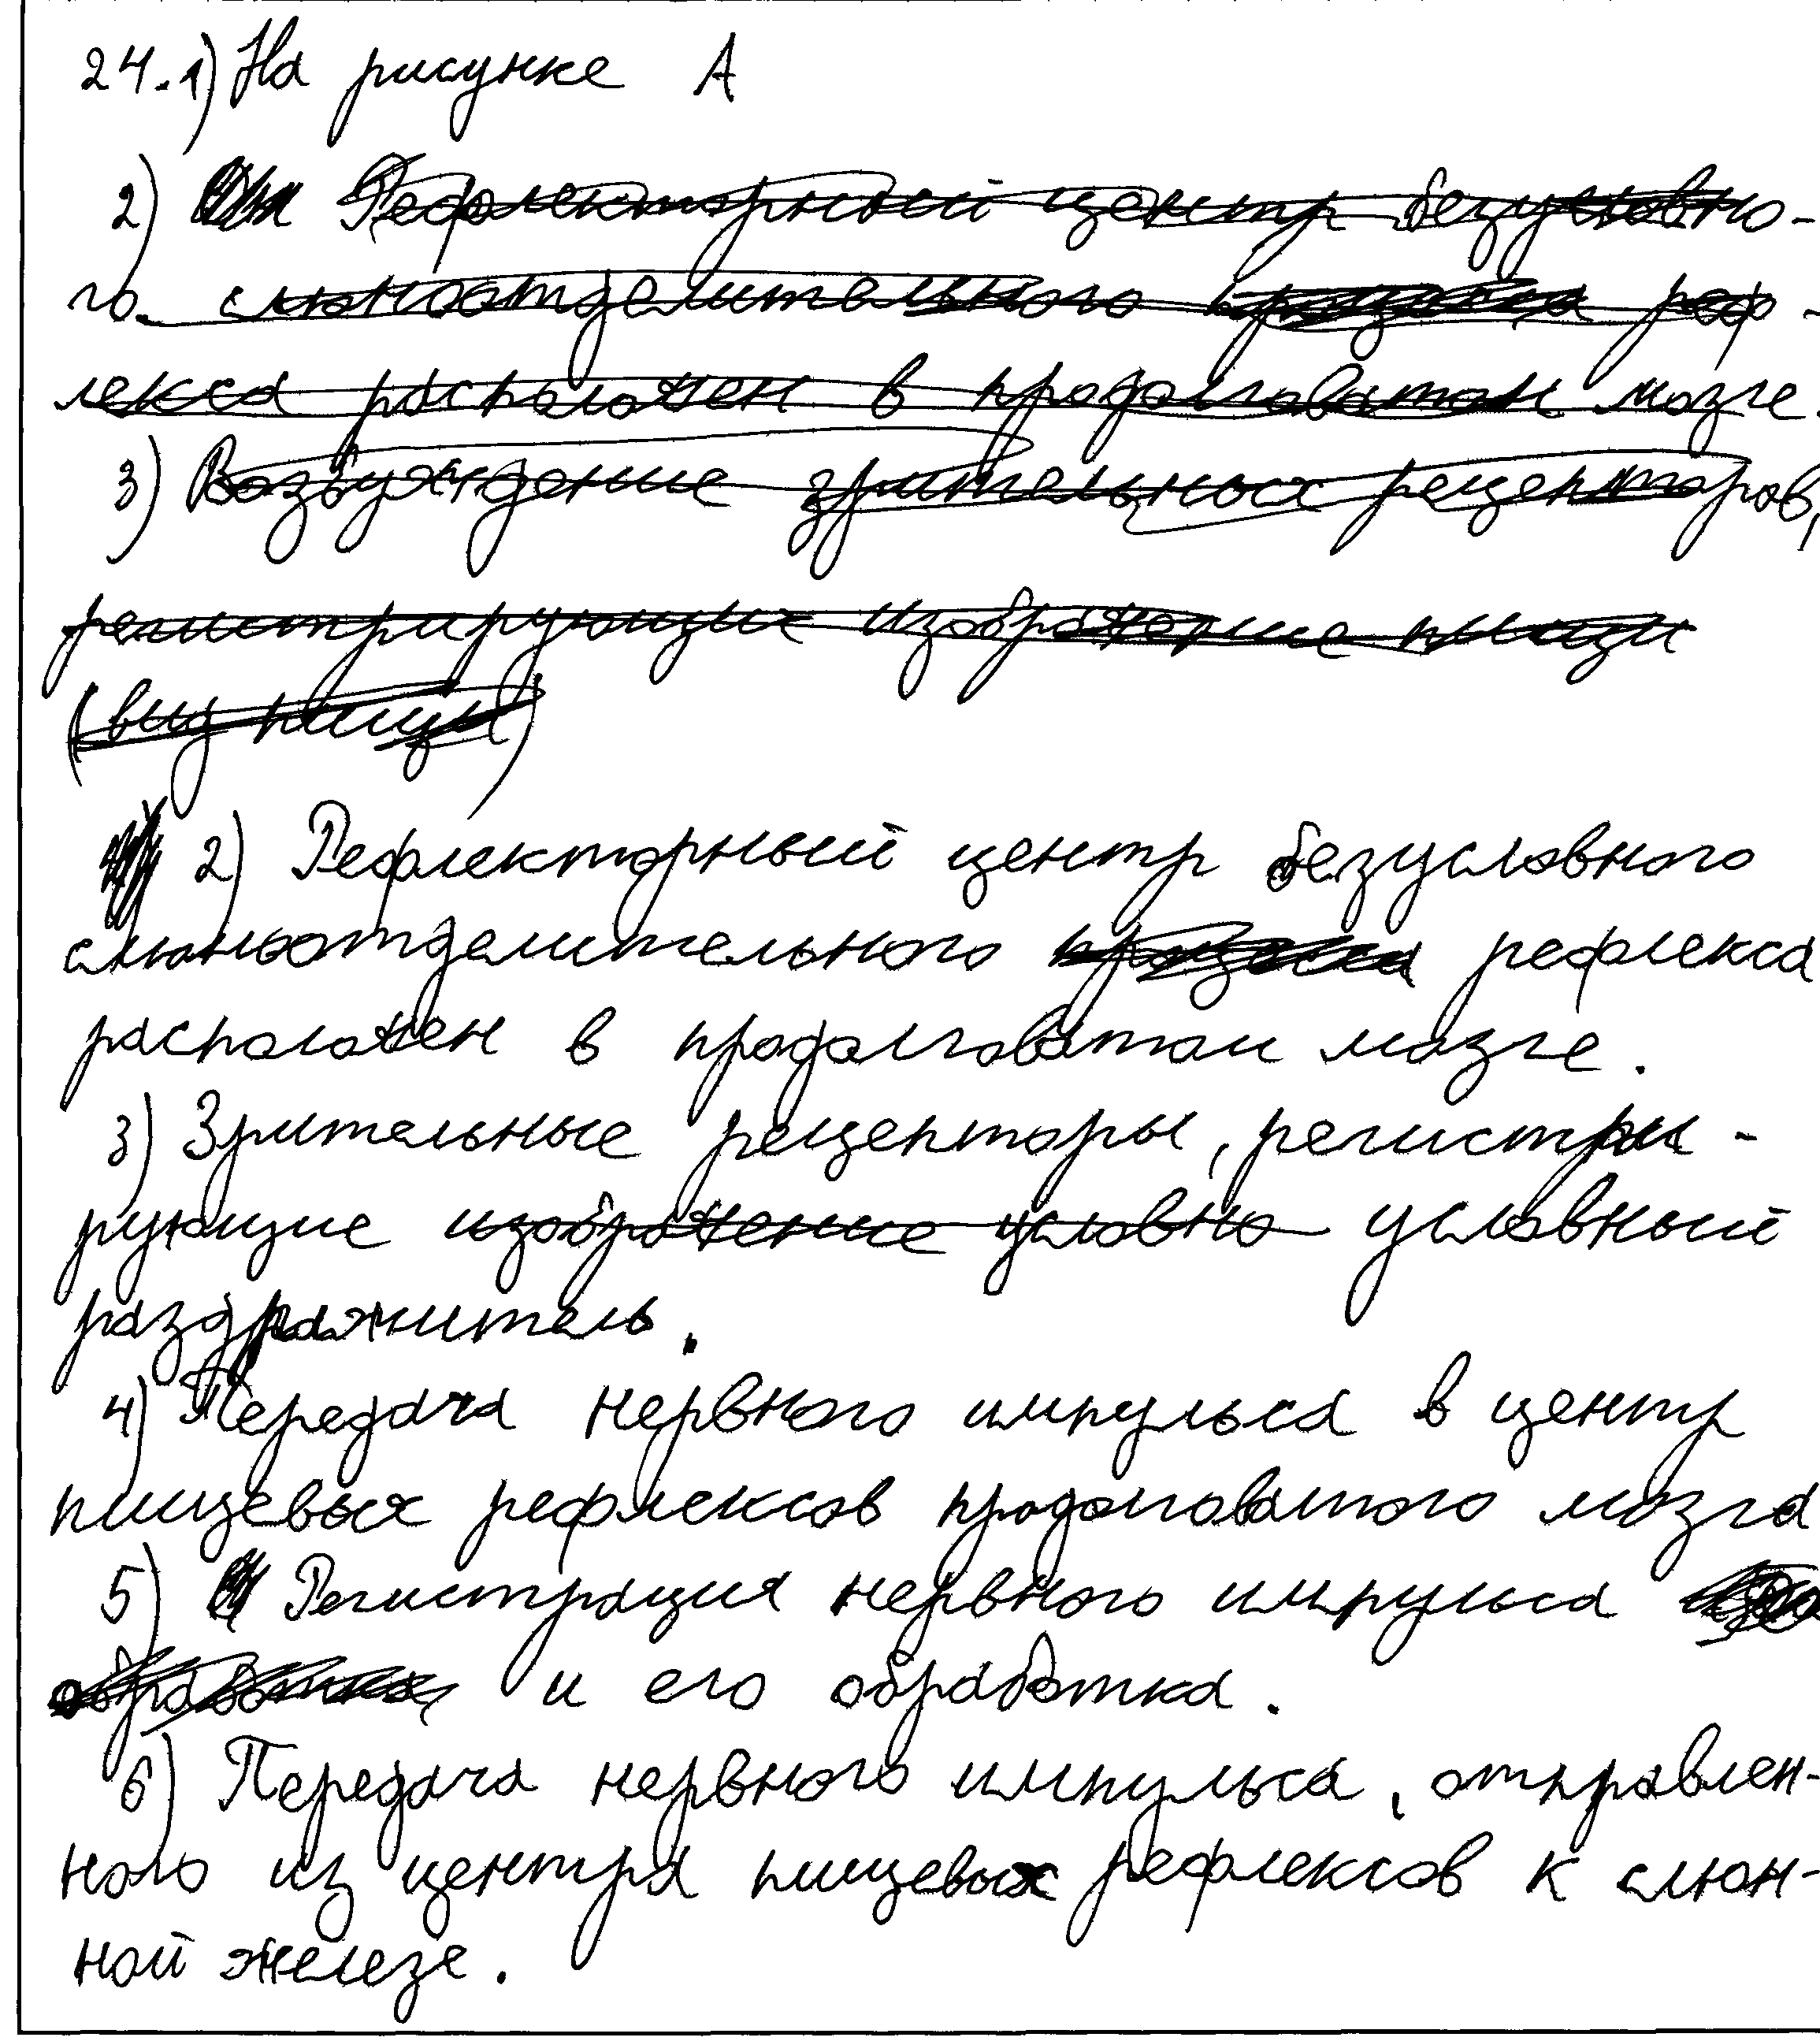 24. 1) На рисунке А
2) Рефлекторный центр безусловно-
го слюноотделительного процесса реф-
лекса расположен в продолговатом мозге.
3) Возбуждение зрительных рецепторов,
регистрирующих изображение пищи
(вид пищи)
2) Рефлекторный центр безусловного
слюноотделительного процесса рефлекса
расположен в продолговатом мозге.
3) Зрительные рецепторы, регистри-
рующие изображение условно условный
раздражитель.
4) Передача нервного импульса в центр
пищевых рефлексов продолговатого мозга
5) Регистрация нервного импульса
обработка и его обработка.
6) Передача нервного импульса, отправлен-
ного из центра пищевых рефлексов к слюн-
ной железе.